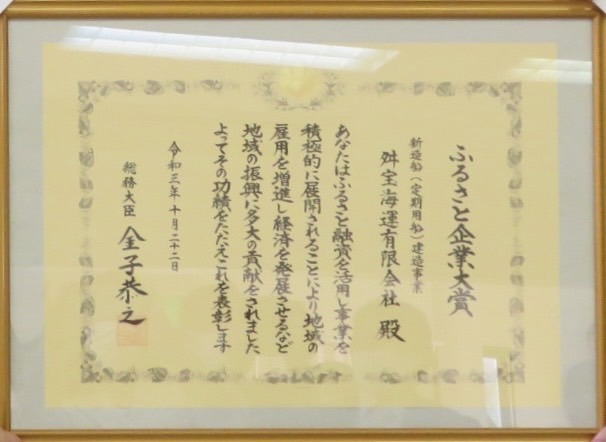 ふるさと企業大賞
新造船（定期用船）建造事業
舛宝海運有限会社 殿
あなたはふるさと融資を活用し事業を
積極的に展開されることにより地域の
雇用を増進し経済を発展させるなど
地域の振興に多大の貢献をされました
よってその功績をたたえこれを表彰します
令和三年十月二十二日
総務大臣 金子恭之